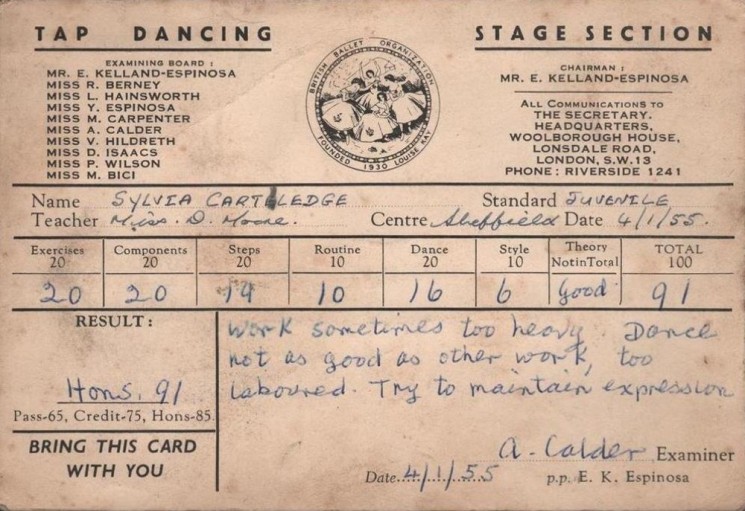 TAP DANCING
EXAMINING BOARD :
MR. E. KELLAND-ESPINOSA
MISS R. BERNEY
MISS L. HAINSWORTH
MISS Y. ESPINOSA
MISS M. CARPENTER
MISS A. CALDER
MISS V. HILDRETH
MISS D. ISAACS
MISS P. WILSON
MISS M. BICI
BRITISH BALLET ORGANIZATION
FOUNDED 1930 LOUISE KAY
STAGE SECTION
CHAIRMAN :
MR. E. KELLAND-ESPINOSA
ALL COMMUNICATIONS TO
THE SECRETARY.
HEADQUARTERS,
WOOLBOROUGH HOUSE,
LONSDALE ROAD,
LONDON, S.W.13
PHONE : RIVERSIDE 1241
Name SYLVIA CARTLEDGE Standard JUVENILE
Teacher Miss. D. Moore. Centre Sheffield Date 4/1/55.
Exercises Components Steps Routine Dance Style Theory TOTAL
20 20 20 10 20 10 Not in Total 100
20 20 19 10 16 6 Good 91
RESULT :
Hons. 91
Pass-65, Credit-75, Hons-85.
BRING THIS CARD
WITH YOU
Work sometimes too heavy. Dance
not as good as other work, too
laboured. Try to maintain expression
A. Calder Examiner
Date 4/1/55 p.p. E. K. Espinosa